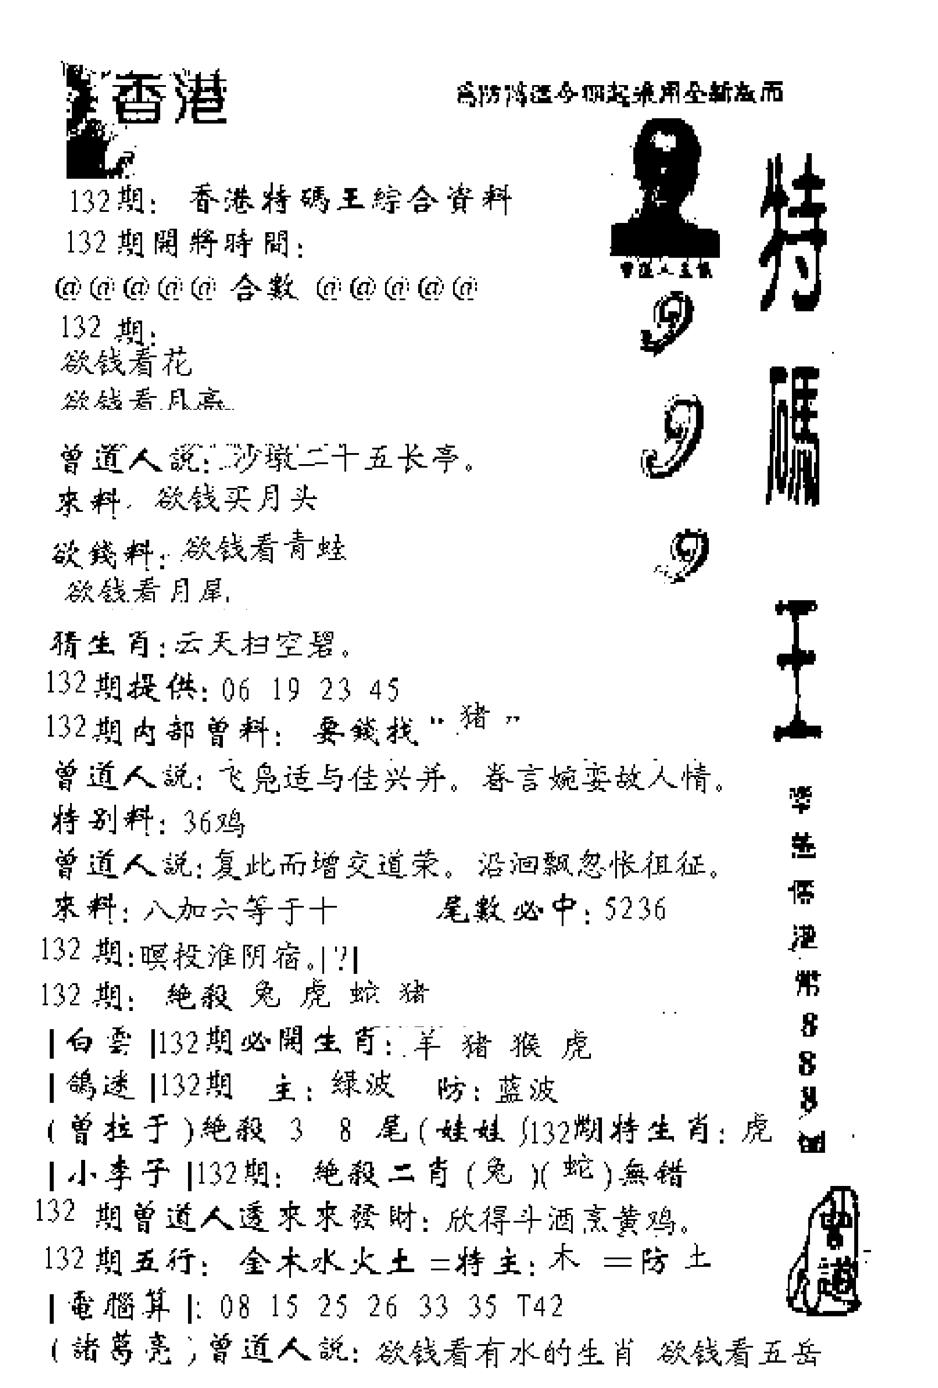 香港
132期：香港特碼王綜合資料
132期開將時間：
@@@@@合數@@@@@
132期：
欲钱看花
欲钱看月亮
曾道人説：沙墩二十五长亭。
來料：欲钱买月头
欲錢料：欲钱看青蛙
欲钱看月尾
猜生肖：云天扫空碧。
132期提供：06 19 23 45
132期内部曾料：要錢找“猪”
曾道人説：飞凫适与佳兴并。眷言婉娈故人情。
特别料：36鸡
曾道人説：复此而增交道荣。沿洄飘忽怅徂征。
來料：八加六等于十 尾數必中：5236
132期：暝投淮阴宿。|?|
132期：絶殺 兔 虎 蛇 猪
|白雲|132期必開生肖：羊 猪 猴 虎
|鴿迷|132期 主：绿波 防：蓝波
(曾拉于)絶殺 3 8 尾(娃娃)132期特生肖：虎
|小李子|132期：絶殺二肖(兔)(蛇)無错
132期曾道人透來來發財：欣得斗酒烹黄鸡。
132期五行：金木水火土=特主：木 =防 土
|電腦算|：08 15 25 26 33 35 T42
(諸葛亮)曾道人説：欲钱看有水的生肖 欲钱看五岳
曾道人主
9
9
9
特
碼
王
港
幣
8
8
8
曾道